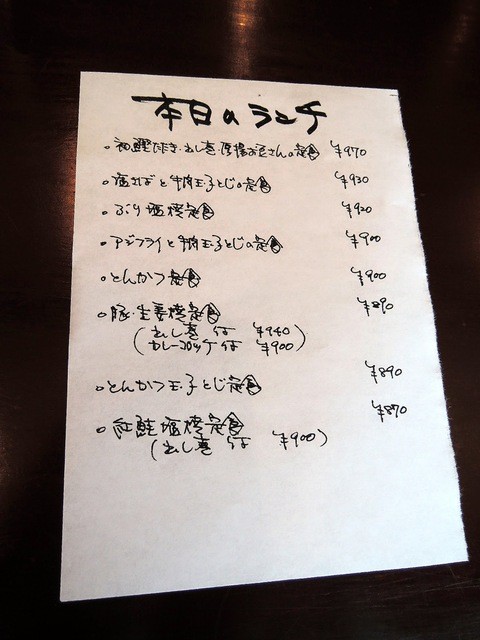 本日のランチ
・初鰹たたき・出し巻・厚揚おこさんの定食 ¥970
・塩さばと牛肉玉子とじの定食 ¥930
・ぶり塩焼定食 ¥920
・アジフライと牛肉玉子とじの定食 ¥900
・とんかつ定食 ¥900
・豚・生姜焼定食 ¥890
(出し巻 付 ¥940
カレーコロッケ付 ¥900)
・とんかつ玉子とじ定食 ¥890
・紅鮭塩焼定食 ¥870
(出し巻 付 ¥900)